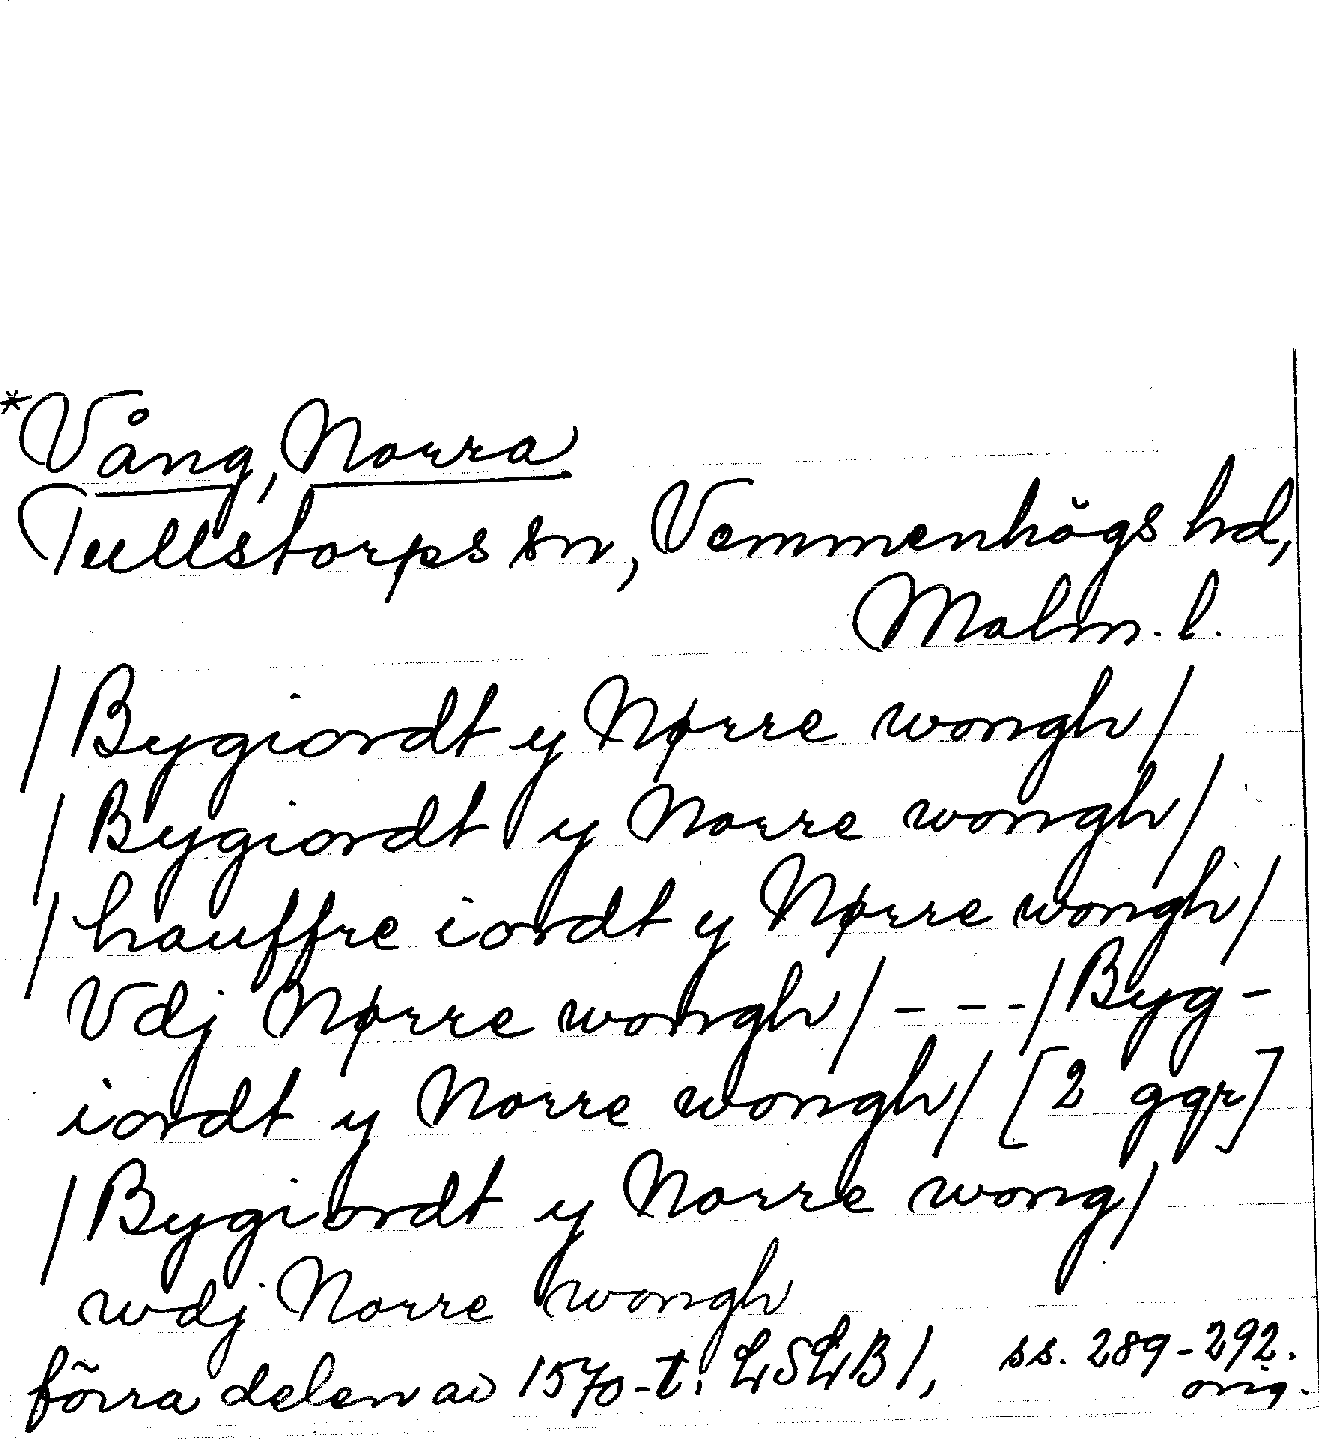 *Vång, Norra
Tullstorps sn, Vemmenhögs hd,
Malm. l.
/Bygiordt y Nørre wongh/
/Bygiordt y Norre wongh/
/hauffre iordt y Nørre wongh/
Vdj Nørre wongh/ - - -/Byg-
iordt y Norre wongh/ [2 ggr]
/Bygiordt y Norre wong/
wdj Norre wongh
förra delen av 1570-t. LSLB 1, ss. 289-292.
orig.